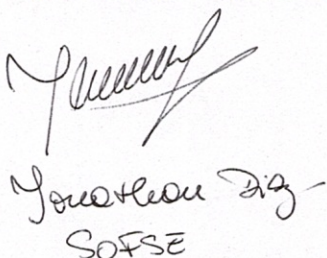 Jonathan Diaz
SOFSE